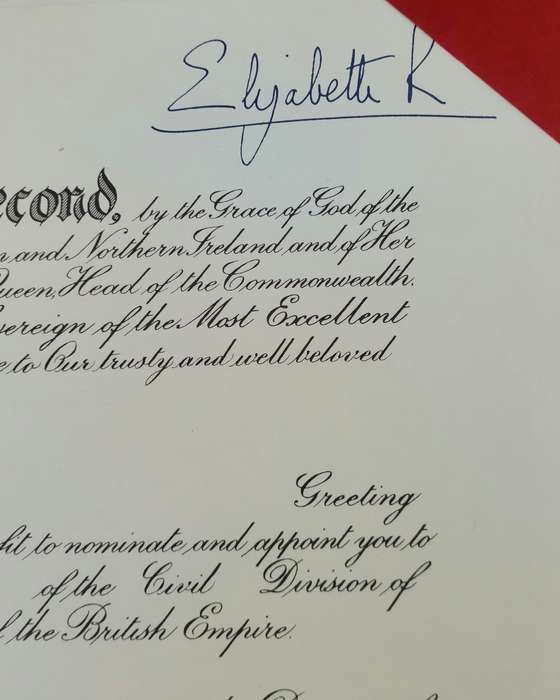 Elizabeth R
econd, by the Grace of God of the
and Northern Ireland and of Her
Queen, Head of the Commonwealth,
vereign of the Most Excellent
e to Our trusty and well beloved
Greeting
fit to nominate and appoint you to
of the Civil Division of
the British Empire.